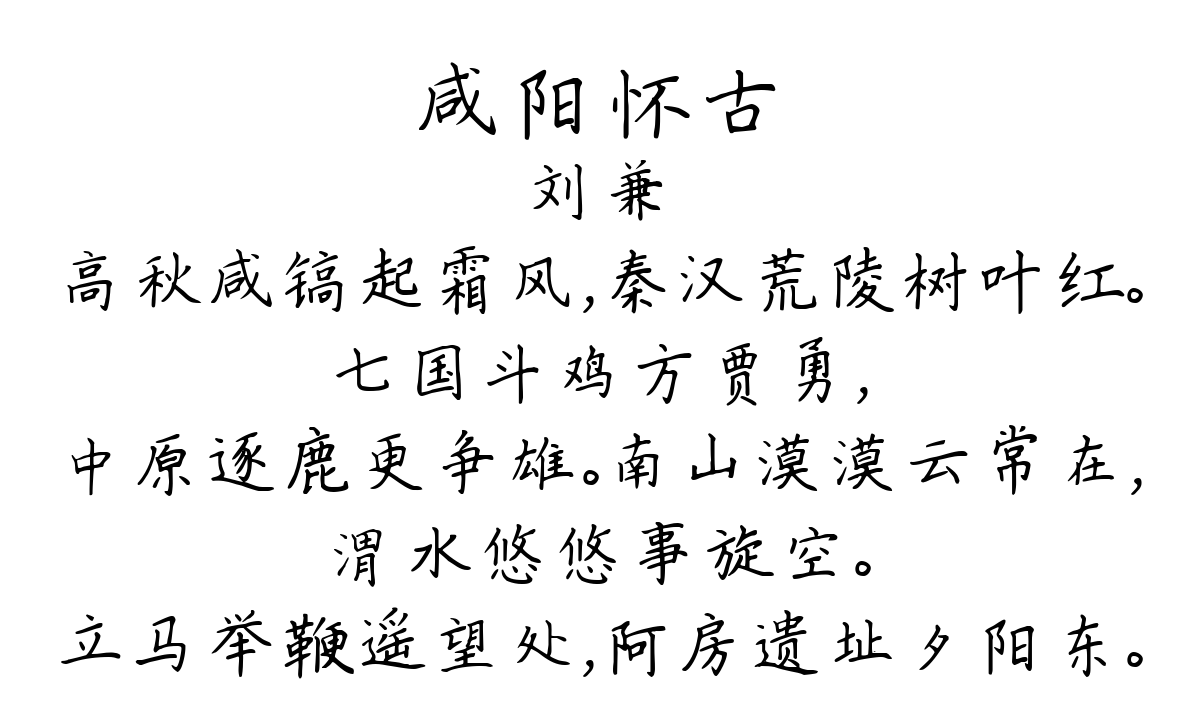 咸阳怀古
刘兼
高秋咸镐起霜风,秦汉荒陵树叶红。
七国斗鸡方贾勇,
中原逐鹿更争雄。南山漠漠云常在,
渭水悠悠事旋空。
立马举鞭遥望处,阿房遗址夕阳东。